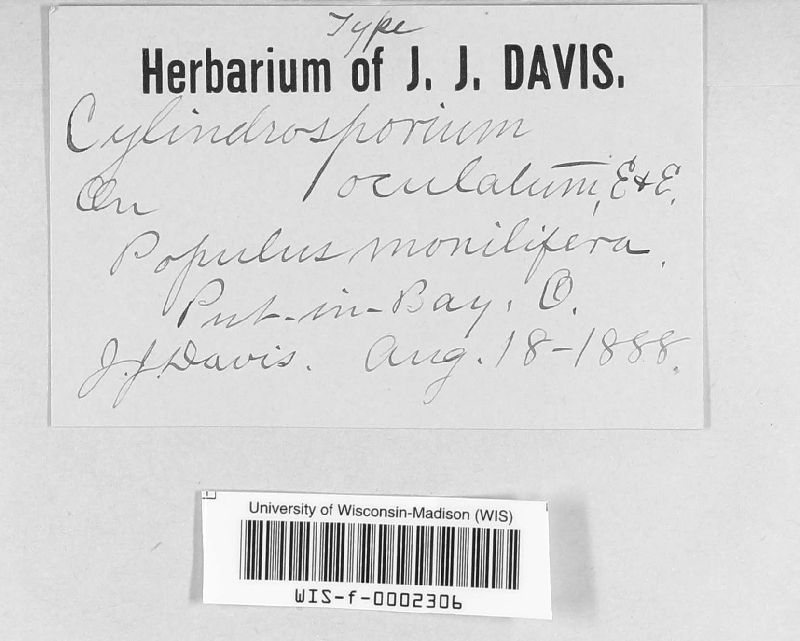 Type
Herbarium of J. J. DAVIS.
Cylindrosporium
oculatum, E & E.
On
Populus monilifera.
Put-in-Bay, O.
J. J. Davis. Aug. 18-1888.
University of Wisconsin-Madison (WIS)
WIS-f-0002306